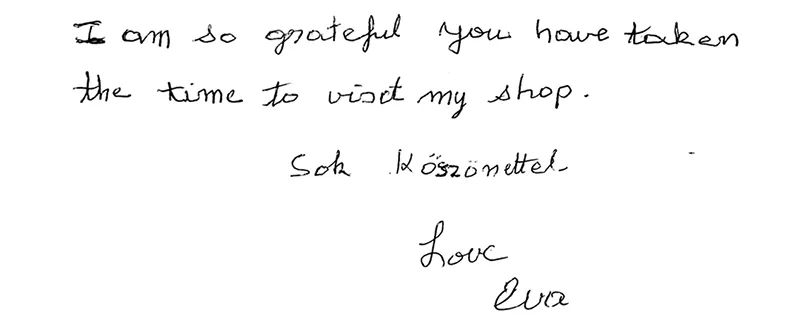 I am so grateful you have taken
the time to visit my shop.
Sok Köszönettel
Love
Eva